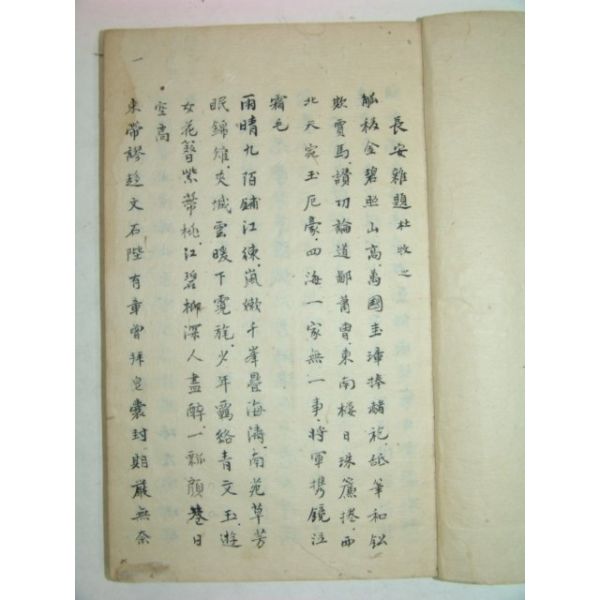 長安雜題 杜牧之
觚稜金碧照山高萬國圭璋捧赭袍舐筆和鉛
欺賈馬讚功論道鄙蕭曹東南樓日珠簾捲西
北天宛玉厄豪四海一家無一事將軍携鏡泣
霜毛
雨晴九陌鋪江練嵐嫩千峯疊海濤南苑草芳
眠錦雉夾城雲暖下霓旄少年羈絡青文玉遊
女花簪紫蔕桃江碧柳深人盡醉一瓢顏巷日
空高
束帶謬趍文石陛有章曾拜皂囊封期嚴無奈
一